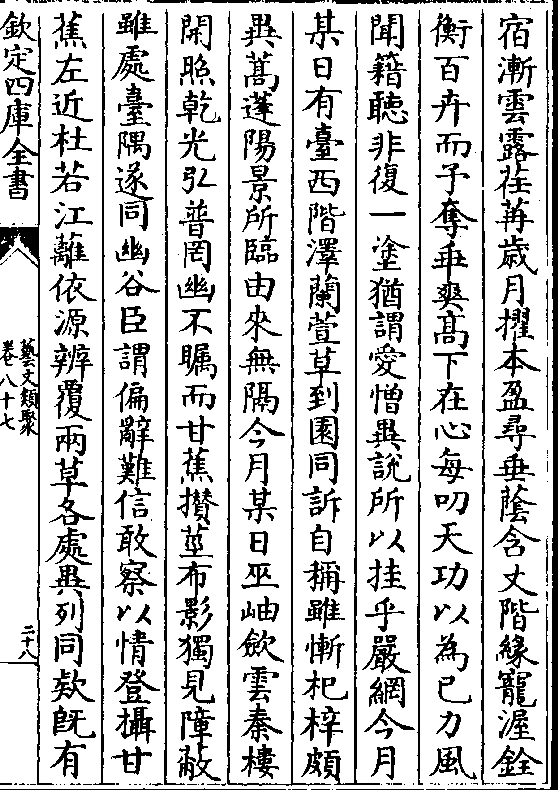 宿漸雲露荏苒歳月擢本盈尋垂蔭含丈階緣寵渥銓
衡百卉而予奪乖爽髙下在心每叨天功以為己力風
聞籍聽非復一塗猶謂愛憎異說所以挂乎嚴網今月
某日有臺西階澤蘭萱草到園同訴自稱雖慚杞梓頗
異蒿蓬陽景所臨由來無隔今月某日巫岫斂雲秦樓
開照乾光弘普罔幽不矚而甘蕉攅莖布影獨見障蔽
雖處臺隅遂同幽谷臣謂偏辭難信敢察以情登攝甘
蕉左近杜若江蘺依源辨覆兩草各處異列同欵既有
欽定四庫全書
藝文類聚
卷八十七
二十八